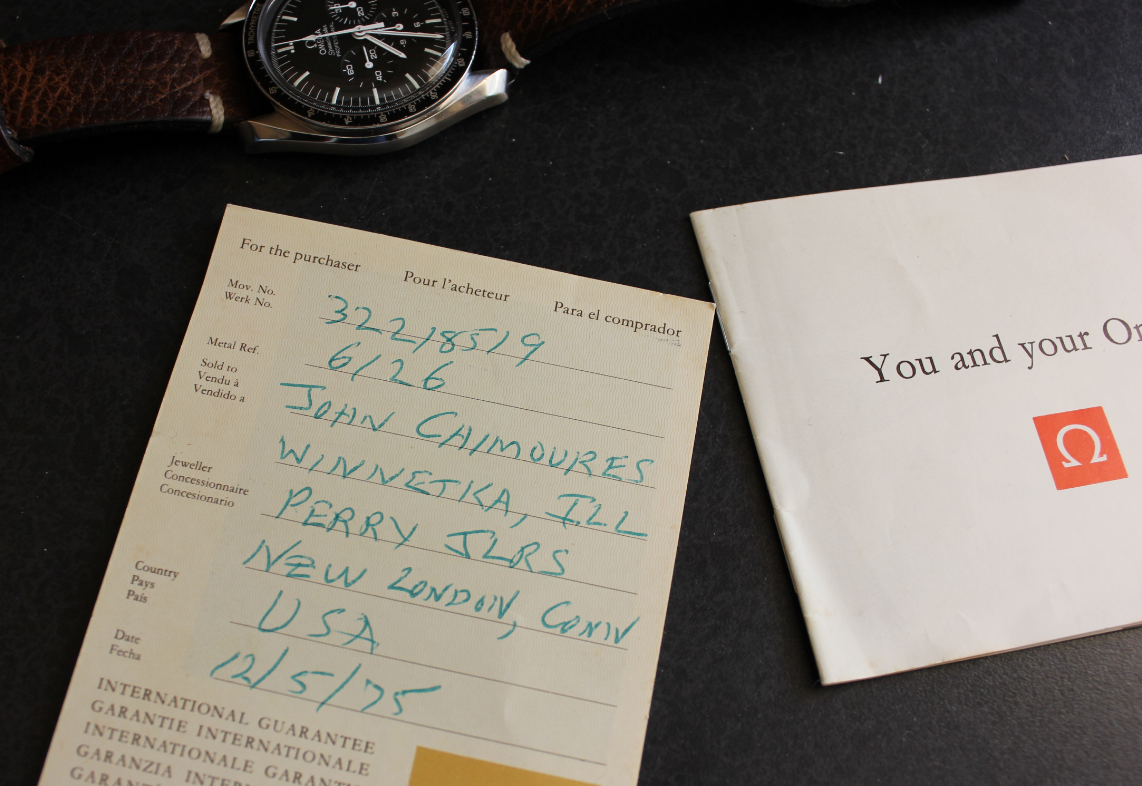 OMEGA
Speedmaster
PROFESSIONAL
For the purchaser Pour l'acheteur Para el comprador
Mov. No.
Werk No.
32218519
Metal Ref.
6126
Sold to
Vendu à
Vendido a
JOHN CAIMOURES
WINNETKA, ILL
Jeweller
Concessionnaire
Concesionario
PERRY JLRS
NEW LONDON, CONN
Country
Pays
País
USA
Date
Fecha
12/5/75
INTERNATIONAL GUARANTEE
GARANTIE INTERNATIONALE
INTERNATIONALE GARANTI
GARANZIA INTER
GARAN
You and your Om
Ω